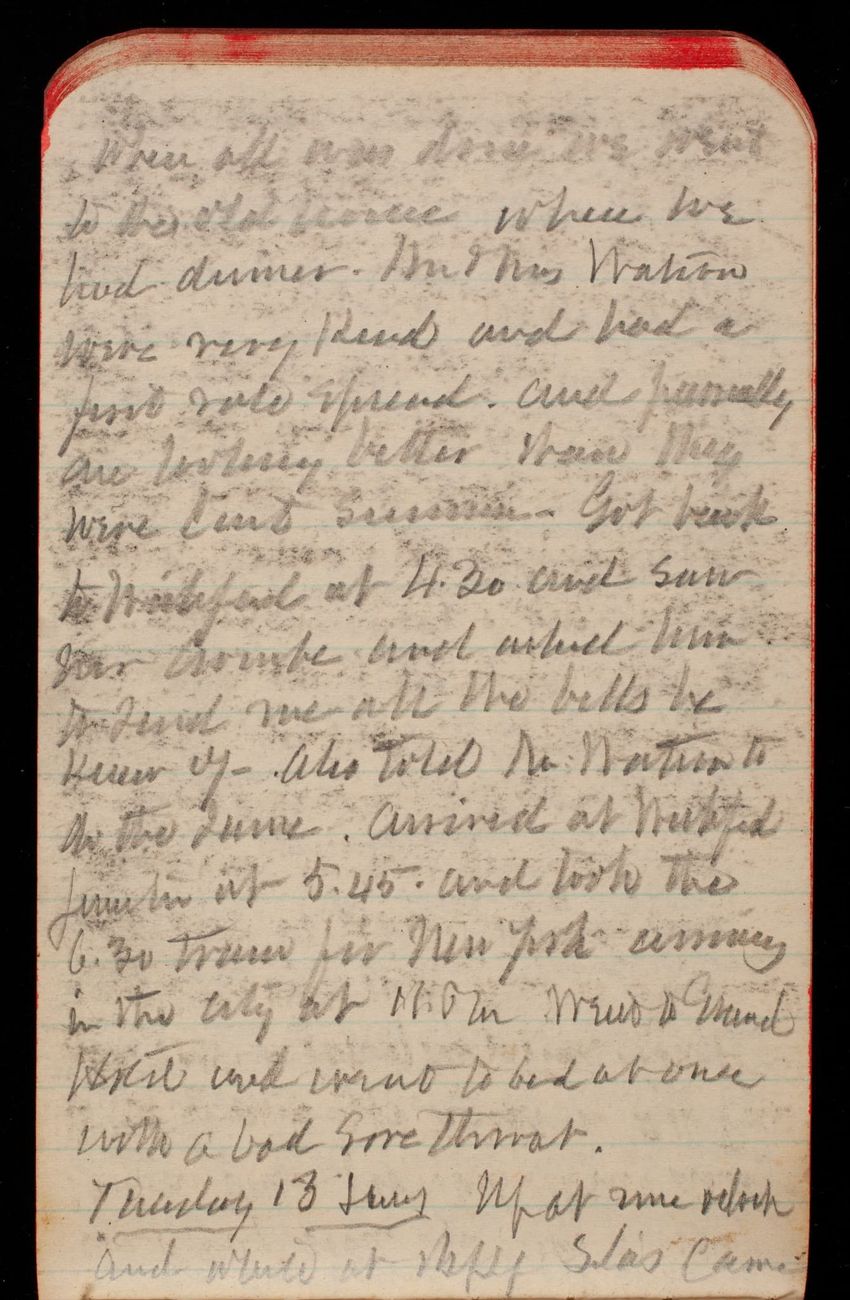 When all was done we went
to the old house where we
had dinner. Mr & Mrs Watson
were very kind and had a
first rate spread. and
are looking better than they
were last summer. Got back
to at 4.30 and saw
and asked him
to send me all the bells he
knew of. Also told Mr. Watson to
do the same. Arrived at
at 5.45. and took the
6.30 train for New York arriving
in the city at Went to Grand
Hotel and went to bed at once
with a bad Sore throat.
Tuesday 13 Up at nine oclock
and at Silas Came